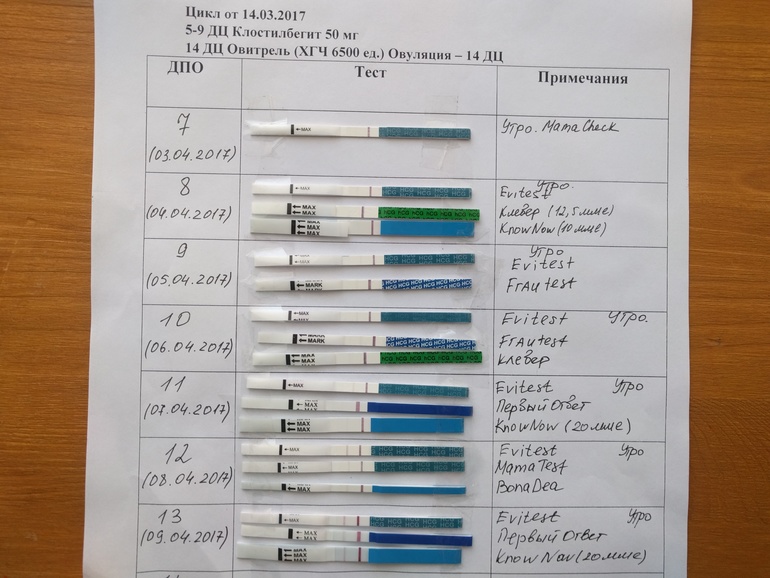 Цикл от 14.03.2017
5-9 ДЦ Клостилбегит 50 мг
14 ДЦ Овитрель (ХГЧ 6500 ед.) Овуляция – 14 ДЦ
ДПО Тест Примечания
7
(03.04.2017)
MAX
HCG HCG HCG HCG
Утро. MamaCheck
8
(04.04.2017)
MAX
MAX
MAX HCG HCG HCG HCG HCG
MAX
MAX
Утро.
Evitest
Клевер (12,5 мме)
KnowNow (10 мме)
9
(05.04.2017)
MAX
MARK HCG HCG HCG HCG
Утро
Evitest
Frautest
10
(06.04.2017)
MAX
MARK HCG HCG HCG HCG
MAX HCG HCG HCG HCG HCG
Evitest Утро.
Frautest
Клевер
11
(07.04.2017)
MAX
MAX
MAX
MAX
Evitest Утро
Первый Ответ
KnowNow (20 мме)
12
(08.04.2017)
MAX HCG HCG HCG HCG
MAX
MAX
Evitest Утро
MamaTest
BonaDea
13
(09.04.2017)
MAX
MAX
MAX
MAX
Evitest Утро
Первый Ответ
Know Nov (20 мме)